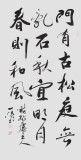 門有古松庭無
亂石秋宜明月
春則和風